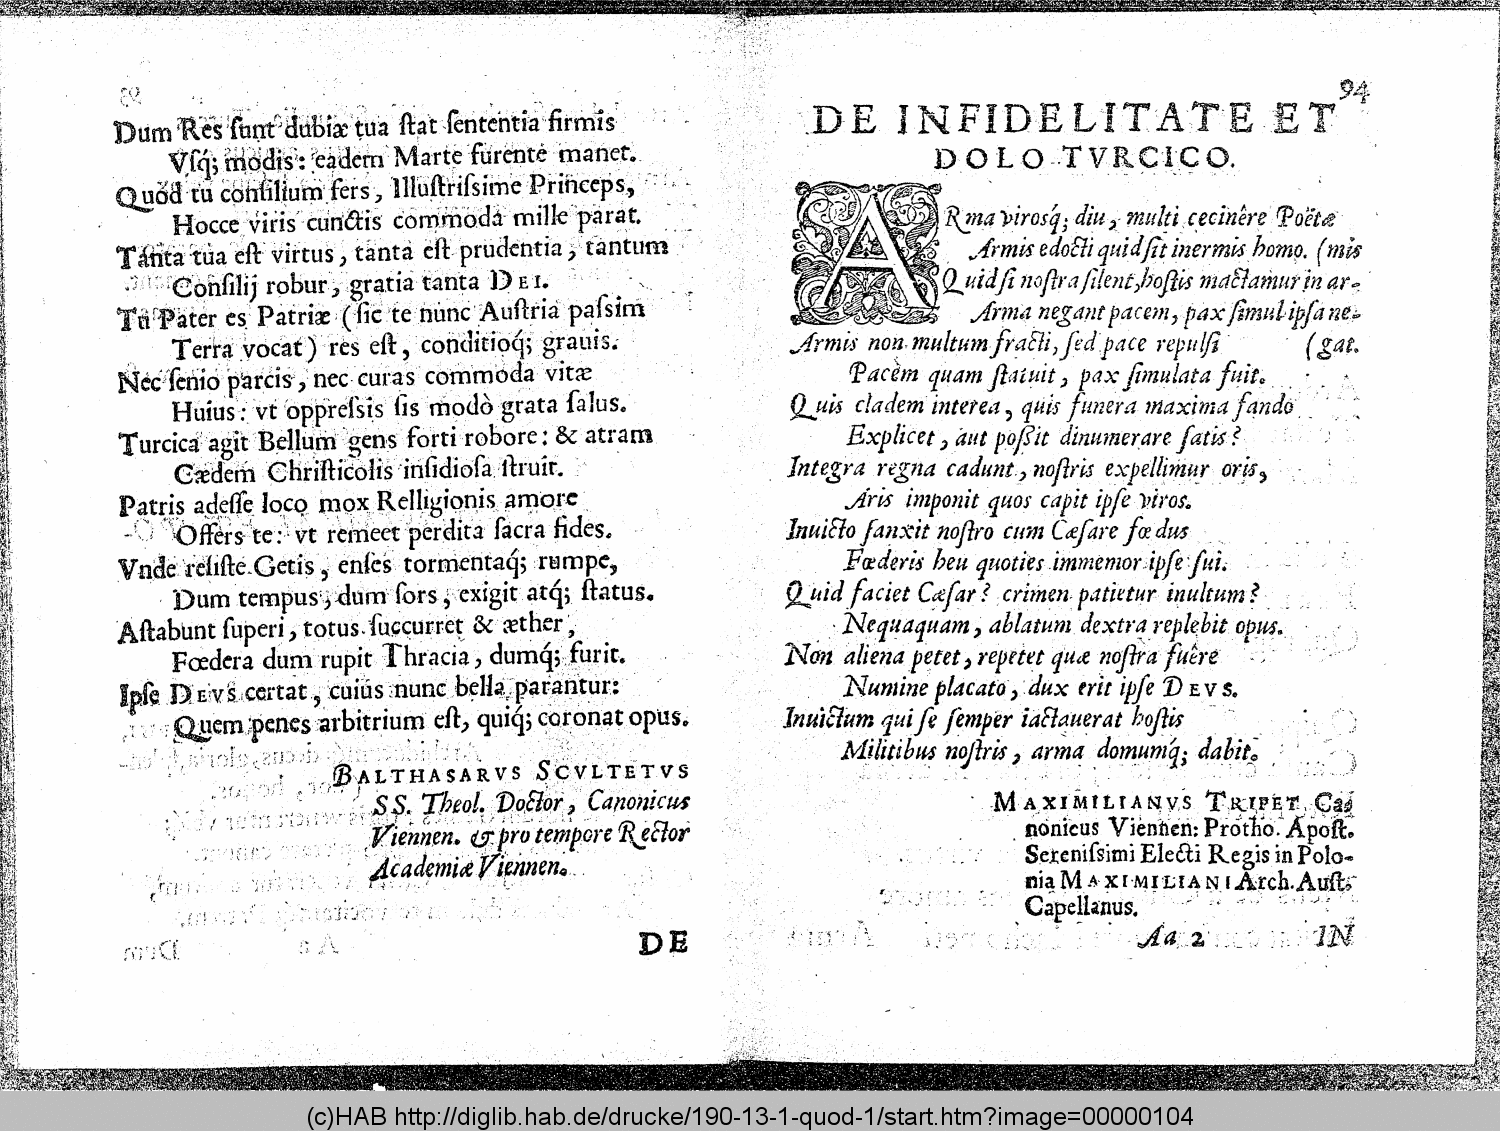 Dum Res ſunt dubiæ tua ſtat ſententia firmis
Vſq́; modis: eadem Marte furente manet.
Quòd tu conſilium fers, Illuſtriſsime Princeps,
Hocce viris cunctis commoda mille parat.
Tanta tua eſt virtus, tanta eſt prudentia, tantum
Conſilij robur, gratia tanta DEI.
Tu Pater es Patriæ (ſic te nunc Auſtria paſsim
Terra vocat) res eſt, conditioq́; grauis.
Nec ſenio parcis, nec curas commoda vitæ
Huius: vt oppreſsis ſis modò grata ſalus.
Turcica agit Bellum gens forti robore: & atram
Cædem Chriſticolis inſidioſa ſtruit.
Patris adeſſe loco mox Relligionis amore
Offers te: vt remeet perdita ſacra fides.
Vnde reſiſte Getis, enſes tormentaq́; rumpe,
Dum tempus, dum ſors, exigit atq́; ſtatus.
Aſtabunt ſuperi, totus ſuccurret & æther,
Fœdera dum rupit Thracia, dumq́; furit.
Ipſe DEVS certat, cuius nunc bella parantur:
Quem penes arbitrium eſt, quiq́; coronat opus.
BALTHASARVS SCVLTETVS
SS. Theol. Doctor, Canonicus
Viennen. & pro tempore Rector
Academiæ Viennen.
DE
94
DE INFIDELITATE ET
DOLO TVRCICO.
ARma virosq́; diu, multi cecinêre Poëtæ
Armis edocti quid ſit inermis homo. (mis
Quid ſi noſtra ſilent, hoſtis mactamur in ar-
Arma negant pacem, pax ſimul ipſa ne-
Armis non multum fracti, ſed pace repulſi (gat.
Pacem quam ſtatuit, pax ſimulata fuit.
Quis cladem interea, quis funera maxima fando
Explicet, aut poßit dinumerare ſatis?
Integra regna cadunt, noſtris expellimur oris,
Aris imponit quos capit ipſe viros.
Inuicto ſanxit noſtro cum Cæſare fœdus
Fœderis heu quoties immemor ipſe ſui.
Quid faciet Cæſar? crimen patietur inultum?
Nequaquam, ablatum dextra replebit opus.
Non aliena petet, repetet quæ noſtra fuêre
Numine placato, dux erit ipſe DEVS.
Inuictum qui ſe ſemper iactauerat hoſtis
Militibus noſtris, arma domumq́; dabit.
MAXIMILIANVS TRIPET, Ca-
nonicus Viennen: Protho. Apoſt.
Sereniſsimi Electi Regis in Polo-
nia MAXIMILIANI Arch. Auſt.
Capellanus.
Aa 2
IN
(c)HAB http://diglib.hab.de/drucke/190-13-1-quod-1/start.htm?image=00000104